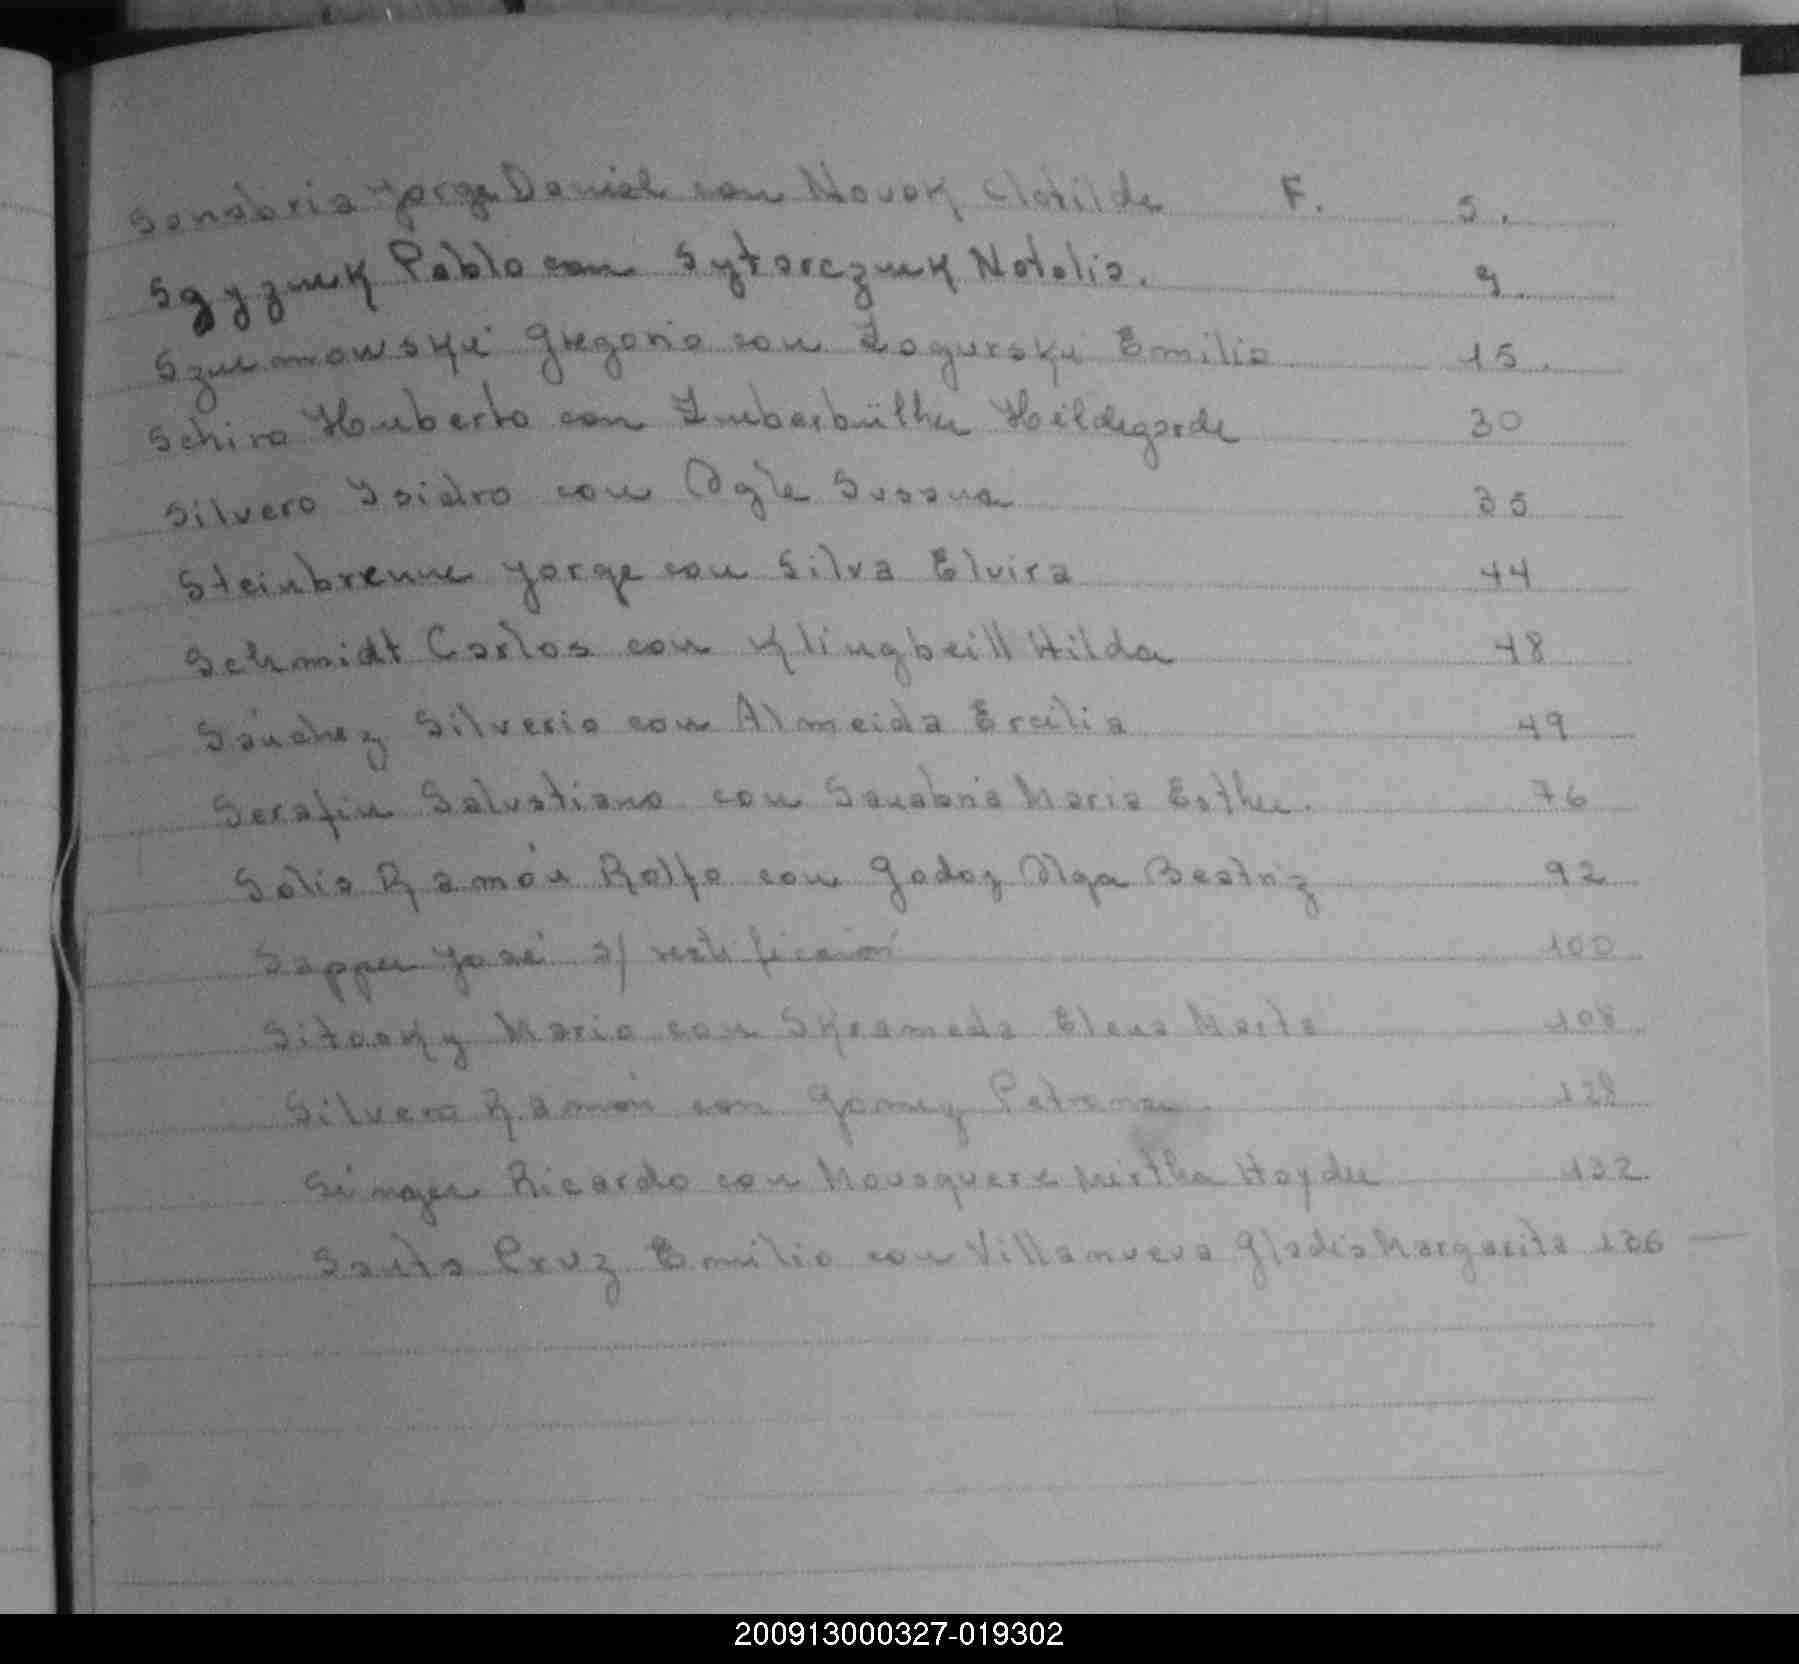 Sanabria Jorge Daniel con Novak Clotilde F. 5.
Pablo con Sytarczuk Natalia. 9.
Szumowski Gregorio con Zagurski Emilia 15.
Schiro Huberto con Hildegarde 30
Silvero Isidro con Ogle Susana 35
Steinbrenne Jorge con Silva Elvira 44
Schmidt Carlos con Klingbeill Hilda 48
Sánchez Silverio con Almeida Ercilia 49
Serafin Salustiano con Sanabria Maria Esther. 76
Solis Ramón Rolfo con Godoy Olga Beatriz 92
Sapper José s/ 100
Sitosky Mario con Elena Marta 108
Silvero Ramón con Gomez Petrona 128
Singer Ricardo con Mousquere Mirtha Haydee 132.
Santa Cruz Emilio con Villanueva Gladis Margarita 136
200913000327-019302